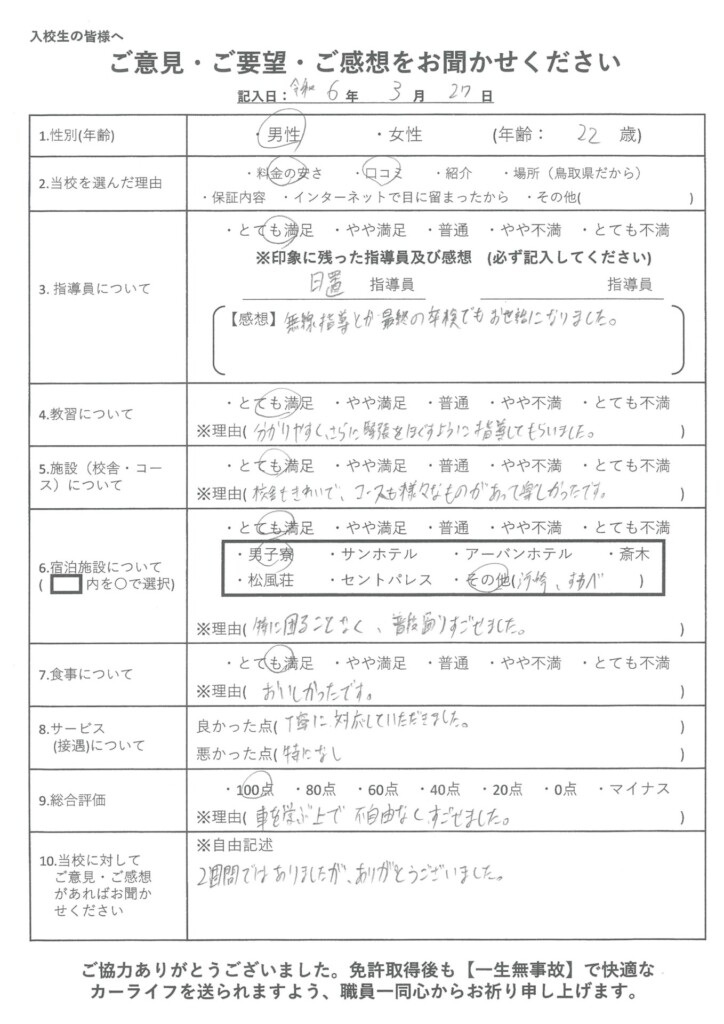 入校生の皆様へ
ご意見・ご要望・ご感想をお聞かせください
記入日：令和 6 年 3 月 27 日
1.性別(年齢) ・男性 ・女性 (年齢： 22 歳)
2.当校を選んだ理由 ・料金の安さ ・口コミ ・紹介 ・場所（鳥取県だから）
・保証内容 ・インターネットで目に留まったから ・その他( )
3. 指導員について ・とても満足 ・やや満足 ・普通 ・やや不満 ・とても不満
※印象に残った指導員及び感想 (必ず記入してください)
日置 指導員 指導員
【感想】無線指導とか最終の卒検でもお世話になりました。
4.教習について ・とても満足 ・やや満足 ・普通 ・やや不満 ・とても不満
※理由( 分かりやすく、さらに緊張をほぐすように指導してもらいました。 )
5.施設（校舎・コース）について ・とても満足 ・やや満足 ・普通 ・やや不満 ・とても不満
※理由( 校舎もきれいで、コースも様々なものがあって楽しかったです。 )
・とても満足 ・やや満足 ・普通 ・やや不満 ・とても不満
6.宿泊施設について
( 内を〇で選択)
・男子寮 ・サンホテル ・アーバンホテル ・斎木
・松風荘 ・セントパレス ・その他( )
※理由( 特に困ることなく、普段通りすごせました。 )
7.食事について ・とても満足 ・やや満足 ・普通 ・やや不満 ・とても不満
※理由( おいしかったです。 )
8.サービス
(接遇)について
良かった点( 丁寧に対応していただきました。 )
悪かった点( 特になし )
9.総合評価 ・100点 ・80点 ・60点 ・40点 ・20点 ・0点 ・マイナス
※理由( 車を学ぶ上で不自由なくすごせました。 )
10.当校に対して
ご意見・ご感想
があればお聞か
せください
※自由記述
2週間ではありましたが、ありがとうございました。
ご協力ありがとうございました。免許取得後も【一生無事故】で快適な
カーライフを送られますよう、職員一同心からお祈り申し上げます。